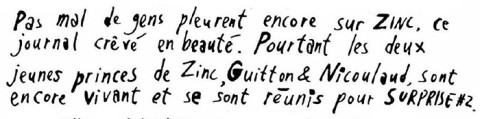 Pas mal de gens pleurent encore sur ZINC, ce
journal crêvé en beauté. Pourtant les deux
jeunes princes de Zinc, Guitton & Nicoulaud, sont
encore vivant et se sont réunis pour SURPRISE #2.